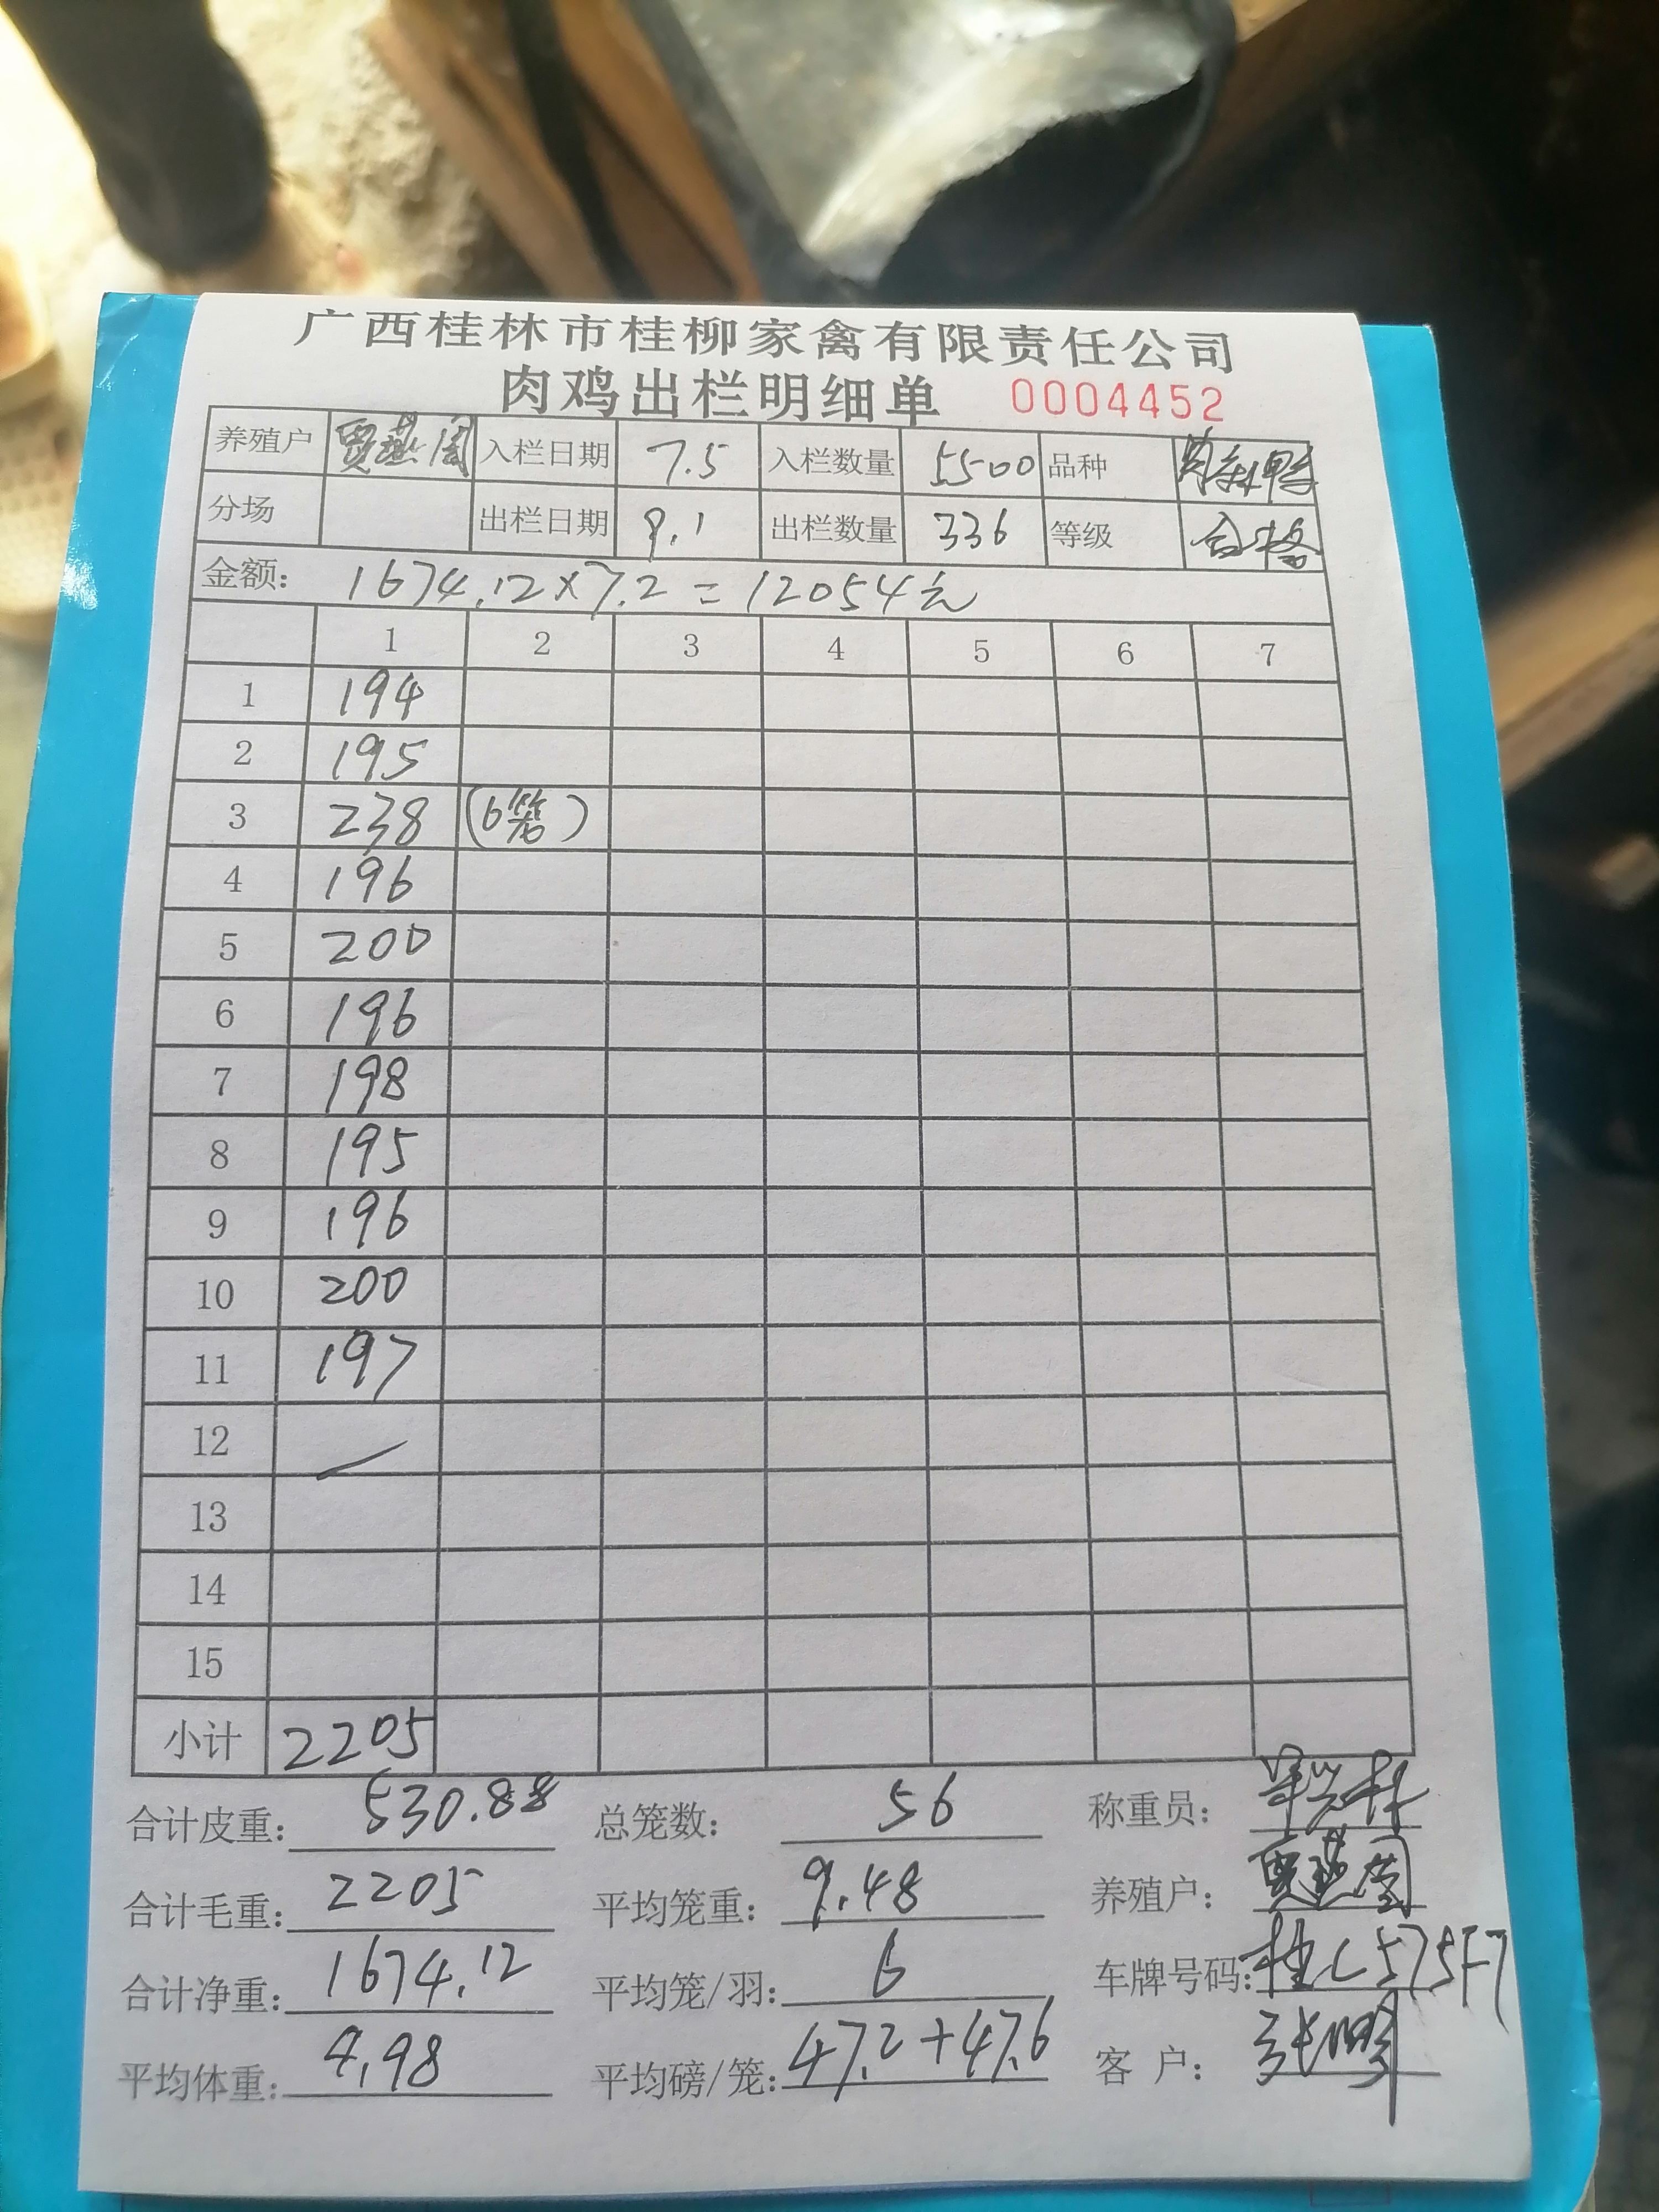 广西桂林市桂柳家禽有限责任公司
肉鸡出栏明细单 0004452
养殖户 贾燕 入栏日期 7.5 入栏数量 5500 品种
分场 出栏日期 9.1 出栏数量 336 等级 合格
金额: 1674.12×7.2=12054元
1 2 3 4 5 6 7
1 194
2 195
3 238 (6笼)
4 196
5 200
6 196
7 198
8 195
9 196
10 200
11 197
12
13
14
15
小计 2205
合计皮重: 530.88 总笼数: 56 称重员:
合计毛重: 2205 平均笼重: 9.48 养殖户: 贾燕
合计净重: 1674.12 平均笼/羽: 6 车牌号码: 桂C575F7
平均体重: 4.98 平均磅/笼: 47.2+47.6 客 户: 张鹏